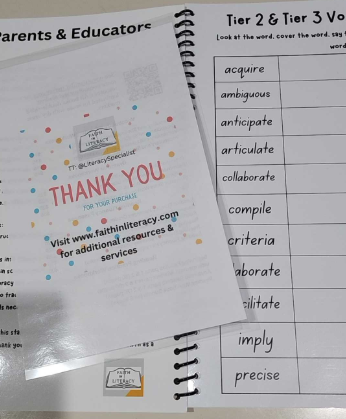 Parents & Educators
FAITH
IN
LITERACY
TT: @LiteracySpecialist
THANK YOU
FOR YOUR PURCHASE
Visit www.faithinliteracy.com
for additional resources &
services
FAITH
IN
LITERACY
Tier 2 & Tier 3 Vo
Look at the word, cover the word, say
word
acquire
ambiguous
anticipate
articulate
collaborate
compile
criteria
aborate
cilitate
imply
precise